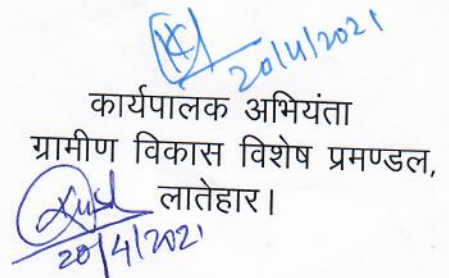 20/4/2021
कार्यपालक अभियंता
ग्रामीण विकास विशेष प्रमण्डल,
लातेहार।
20/4/2021